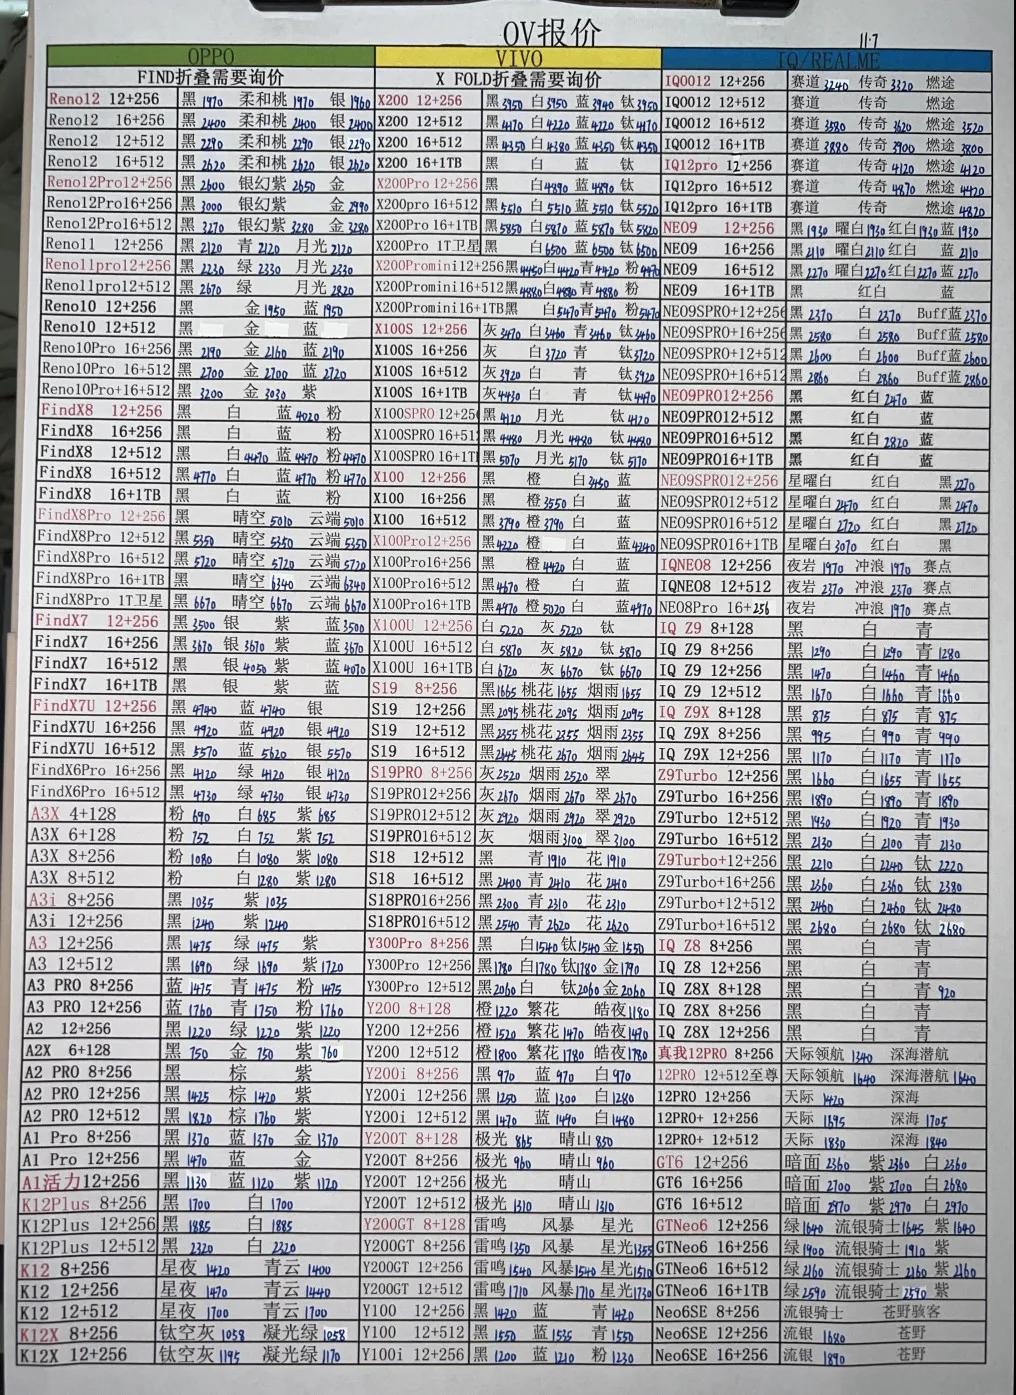 OV报价
11.7
OPPO
FIND折叠需要询价
Reno12 12+256 黑1970 柔和桃1970 银1960
Reno12 16+256 黑2400 柔和桃2400 银2400
Reno12 12+512 黑2290 柔和桃2290 银2290
Reno12 16+512 黑2620 柔和桃2620 银2620
Reno12Pro12+256 黑2600 银幻紫2650 金
Reno12Pro16+256 黑3000 银幻紫 金2990
Reno12Pro16+512 黑3270 银幻紫3280 金3280
Reno11 12+256 黑2120 青2120 月光2120
Reno11pro12+256 黑2230 绿2330 月光2330
Reno11pro12+512 黑2670 绿 月光2820
Reno10 12+256 黑 金1950 蓝1950
Reno10 12+512 黑 金 蓝
Reno10Pro 16+256 黑2190 金2160 蓝2190
Reno10Pro 16+512 黑2700 金2700 蓝2720
Reno10Pro+16+512 黑3200 金3030 紫
FindX8 12+256 黑 白 蓝4020 粉
FindX8 16+256 黑 白 蓝 粉
FindX8 12+512 黑 白4470 蓝4470 粉4470
FindX8 16+512 黑4770 白 蓝4770 粉4770
FindX8 16+1TB 黑 白 蓝 粉
FindX8Pro 12+256 黑 晴空5010 云端5010
FindX8Pro 12+512 黑5350 晴空5350 云端5350
FindX8Pro 16+512 黑5720 晴空5720 云端5720
FindX8Pro 16+1TB 黑 晴空6340 云端6340
FindX8Pro 1T卫星 黑6670 晴空6670 云端6670
FindX7 12+256 黑3500 银 紫 蓝3500
FindX7 16+256 黑3670 银3670 紫 蓝3670
FindX7 16+512 黑 银4050 紫 蓝4070
FindX7 16+1TB 黑 银 紫 蓝
FindX7U 12+256 黑4740 蓝4740 银
FindX7U 16+256 黑4920 蓝4920 银4920
FindX7U 16+512 黑5570 蓝5620 银5570
FindX6Pro 16+256 黑4120 绿4120 银4120
FindX6Pro 16+512 黑4730 绿4730 银4730
A3X 4+128 粉690 白685 紫685
A3X 6+128 粉752 白752 紫752
A3X 8+256 粉1080 白1080 紫1080
A3X 8+512 粉 白1280 紫1280
A3i 8+256 黑1035 紫1035
A3i 12+256 黑1240 紫1240
A3 12+256 黑1475 绿1475 紫
A3 12+512 黑1690 绿1690 紫1720
A3 PRO 8+256 蓝1475 青1475 粉1475
A3 PRO 12+256 蓝1760 青1750 粉1760
A2 12+256 黑1220 绿1220 紫1220
A2X 6+128 黑750 金750 紫760
A2 PRO 8+256 黑 棕 紫
A2 PRO 12+256 黑1425 棕1420 紫
A2 PRO 12+512 黑1820 棕1760 紫
A1 Pro 8+256 黑1370 蓝1370 金1370
A1 Pro 12+256 黑1470 蓝 金
A1活力12+256 黑1130 蓝1120 紫1120
K12Plus 8+256 黑1700 白1700
K12Plus 12+256 黑1885 白1885
K12Plus 12+512 黑2320 白2320
K12 8+256 星夜1420 青云1400
K12 12+256 星夜1470 青云1440
K12 12+512 星夜1700 青云1700
K12X 8+256 钛空灰1058 凝光绿1058
K12X 12+256 钛空灰1195 凝光绿1170
VIVO
X FOLD折叠需要询价
X200 12+256 黑3950 白3950 蓝3940 钛3950
X200 12+512 黑4170 白4220 蓝4220 钛4170
X200 16+512 黑4350 白4380 蓝4350 钛4350
X200 16+1TB 黑 白 蓝 钛
X200Pro 12+256 黑 白4890 蓝4890 钛
X200pro 16+512 黑5510 白5510 蓝5510 钛5520
X200Pro 16+1TB 黑5850 白5870 蓝5870 钛5820
X200Pro 1T卫星 黑 白6500 蓝6500 钛6500
X200Promini12+256 黑4450 白4420 青4420 粉4470
X200Promini16+512 黑4880 白4880 青4880 粉
X200Promini16+1TB 黑 白5470 青5470 粉5470
X100S 12+256 灰3470 白3460 青3460 钛3460
X100S 16+256 灰 白3720 青 钛3720
X100S 16+512 灰3920 白 青 钛3920
X100S 16+1TB 灰4430 白 青 钛4470
X100SPRO 12+256 黑4120 月光 钛4120
X100SPRO 16+512 黑4480 月光4480 钛4480
X100SPRO 16+1T 黑5070 月光5170 钛5170
X100 12+256 黑 橙 白3450 蓝
X100 16+256 黑 橙3550 白 蓝
X100 16+512 黑3790 橙3790 白 蓝
X100Pro12+256 黑4220 橙 白 蓝4240
X100Pro16+256 黑 橙4420 白 蓝
X100Pro16+512 黑4670 橙 白 蓝
X100Pro16+1TB 黑4970 橙5020 白 蓝4970
X100U 12+256 白5220 灰5220 钛
X100U 16+512 白5870 灰5820 钛5870
X100U 16+1TB 白6720 灰6670 钛6670
S19 8+256 黑1665 桃花1655 烟雨1655
S19 12+256 黑2095 桃花2095 烟雨2095
S19 12+512 黑2355 桃花2355 烟雨2355
S19 16+512 黑2645 桃花2670 烟雨2645
S19PRO 8+256 灰2520 烟雨2520 翠
S19PRO12+256 灰2670 烟雨2670 翠2670
S19PRO12+512 灰2920 烟雨2920 翠2920
S19PRO16+512 灰 烟雨3100 翠3100
S18 12+512 黑 青1910 花1910
S18 16+512 黑2400 青2410 花2410
S18PRO16+256 黑2300 青2310 花2310
S18PRO16+512 黑2540 青2620 花2620
Y300Pro 8+256 黑 白1540 钛1540 金1550
Y300Pro 12+256 黑1780 白1780 钛1780 金1790
Y300Pro 12+512 黑2060 白 钛2060 金2060
Y200 8+128 橙1220 繁花 皓夜1180
Y200 12+256 橙1520 繁花1470 皓夜1470
Y200 12+512 橙1800 繁花1780 皓夜1780
Y200i 8+256 黑970 蓝970 白970
Y200i 12+256 黑1250 蓝1300 白1280
Y200i 12+512 黑1470 蓝1490 白1480
Y200T 8+128 极光865 晴山850
Y200T 8+256 极光960 晴山960
Y200T 12+256 极光 晴山
Y200T 12+512 极光1310 晴山1310
Y200GT 8+128 雷鸣 风暴 星光
Y200GT 8+256 雷鸣1350 风暴 星光1355
Y200GT 12+256 雷鸣1540 风暴1540 星光1510
Y200GT 12+512 雷鸣1710 风暴1710 星光1730
Y100 12+256 黑1420 蓝 青1420
Y100 12+512 黑1550 蓝1535 青1550
Y100i 12+256 黑1200 蓝1210 粉1230
IQ/REALME
IQ0012 12+256 赛道3240 传奇3320 燃途
IQ0012 12+512 赛道 传奇 燃途
IQ0012 16+512 赛道3580 传奇3620 燃途3520
IQ0012 16+1TB 赛道3880 传奇3900 燃途3800
IQ12pro 12+256 赛道 传奇4120 燃途4120
IQ12pro 16+512 赛道 传奇4870 燃途4420
IQ12pro 16+1TB 赛道 传奇 燃途4820
NEO9 12+256 黑1930 曜白1930 红白1930 蓝1930
NEO9 16+256 黑2110 曜白2110 红白 蓝2110
NEO9 16+512 黑2270 曜白2270 红白2270 蓝2270
NEO9 16+1TB 黑 红白 蓝
NEO9SPRO+12+256 黑2370 白2370 Buff蓝2370
NEO9SPRO+16+256 黑2580 白2580 Buff蓝2580
NEO9SPRO+12+512 黑2600 白2600 Buff蓝2600
NEO9SPRO+16+512 黑2860 白2860 Buff蓝2860
NEO9PRO12+256 黑 红白2470 蓝
NEO9PRO12+512 黑 红白 蓝
NEO9PRO16+512 黑 红白2820 蓝
NEO9PRO16+1TB 黑 红白 蓝
NEO9SPRO12+256 星曜白 红白 黑2270
NEO9SPRO12+512 星曜白2470 红白 黑2470
NEO9SPRO16+512 星曜白2720 红白 黑2720
NEO9SPRO16+1TB 星曜白3070 红白 黑
IQNEO8 12+256 夜岩1970 冲浪1970 赛点
IQNEO8 12+512 夜岩2370 冲浪2370 赛点
NEO8Pro 16+256 夜岩 冲浪1970 赛点
IQ Z9 8+128 黑 白 青
IQ Z9 8+256 黑1290 白1290 青1280
IQ Z9 12+256 黑1470 白1460 青1460
IQ Z9 12+512 黑1670 白1660 青1660
IQ Z9X 8+128 黑875 白875 青875
IQ Z9X 8+256 黑995 白990 青990
IQ Z9X 12+256 黑1170 白1170 青1170
Z9Turbo 12+256 黑1660 白1655 青1655
Z9Turbo 16+256 黑1890 白1890 青1890
Z9Turbo 12+512 黑1930 白1920 青1930
Z9Turbo 16+512 黑2130 白2100 青2130
Z9Turbo+12+256 黑2210 白2240 钛2220
Z9Turbo+16+256 黑2360 白2360 钛2380
Z9Turbo+12+512 黑2460 白2460 钛2480
Z9Turbo+16+512 黑2680 白2680 钛2680
IQ Z8 8+256 黑 白 青
IQ Z8 12+256 黑 白 青
IQ Z8X 8+128 黑 白 青920
IQ Z8X 8+256 黑 白 青
IQ Z8X 12+256 黑 白 青
真我12PRO 8+256 天际领航1340 深海潜航
12PRO 12+512至尊 天际领航1640 深海潜航1640
12PRO 12+256 天际1420 深海
12PRO+ 12+256 天际1695 深海1705
12PRO+ 12+512 天际1830 深海1840
GT6 12+256 暗面2360 紫2360 白2360
GT6 16+256 暗面2700 紫2700 白2680
GT6 16+512 暗面2970 紫2970 白2970
GTNeo6 12+256 绿1640 流银骑士1645 紫1640
GTNeo6 16+256 绿1900 流银骑士1910 紫
GTNeo6 16+512 绿2160 流银骑士2160 紫2160
GTNeo6 16+1TB 绿2590 流银骑士2590 紫
Neo6SE 8+256 流银骑士 苍野骇客
Neo6SE 12+256 流银1680 苍野
Neo6SE 16+256 流银1890 苍野